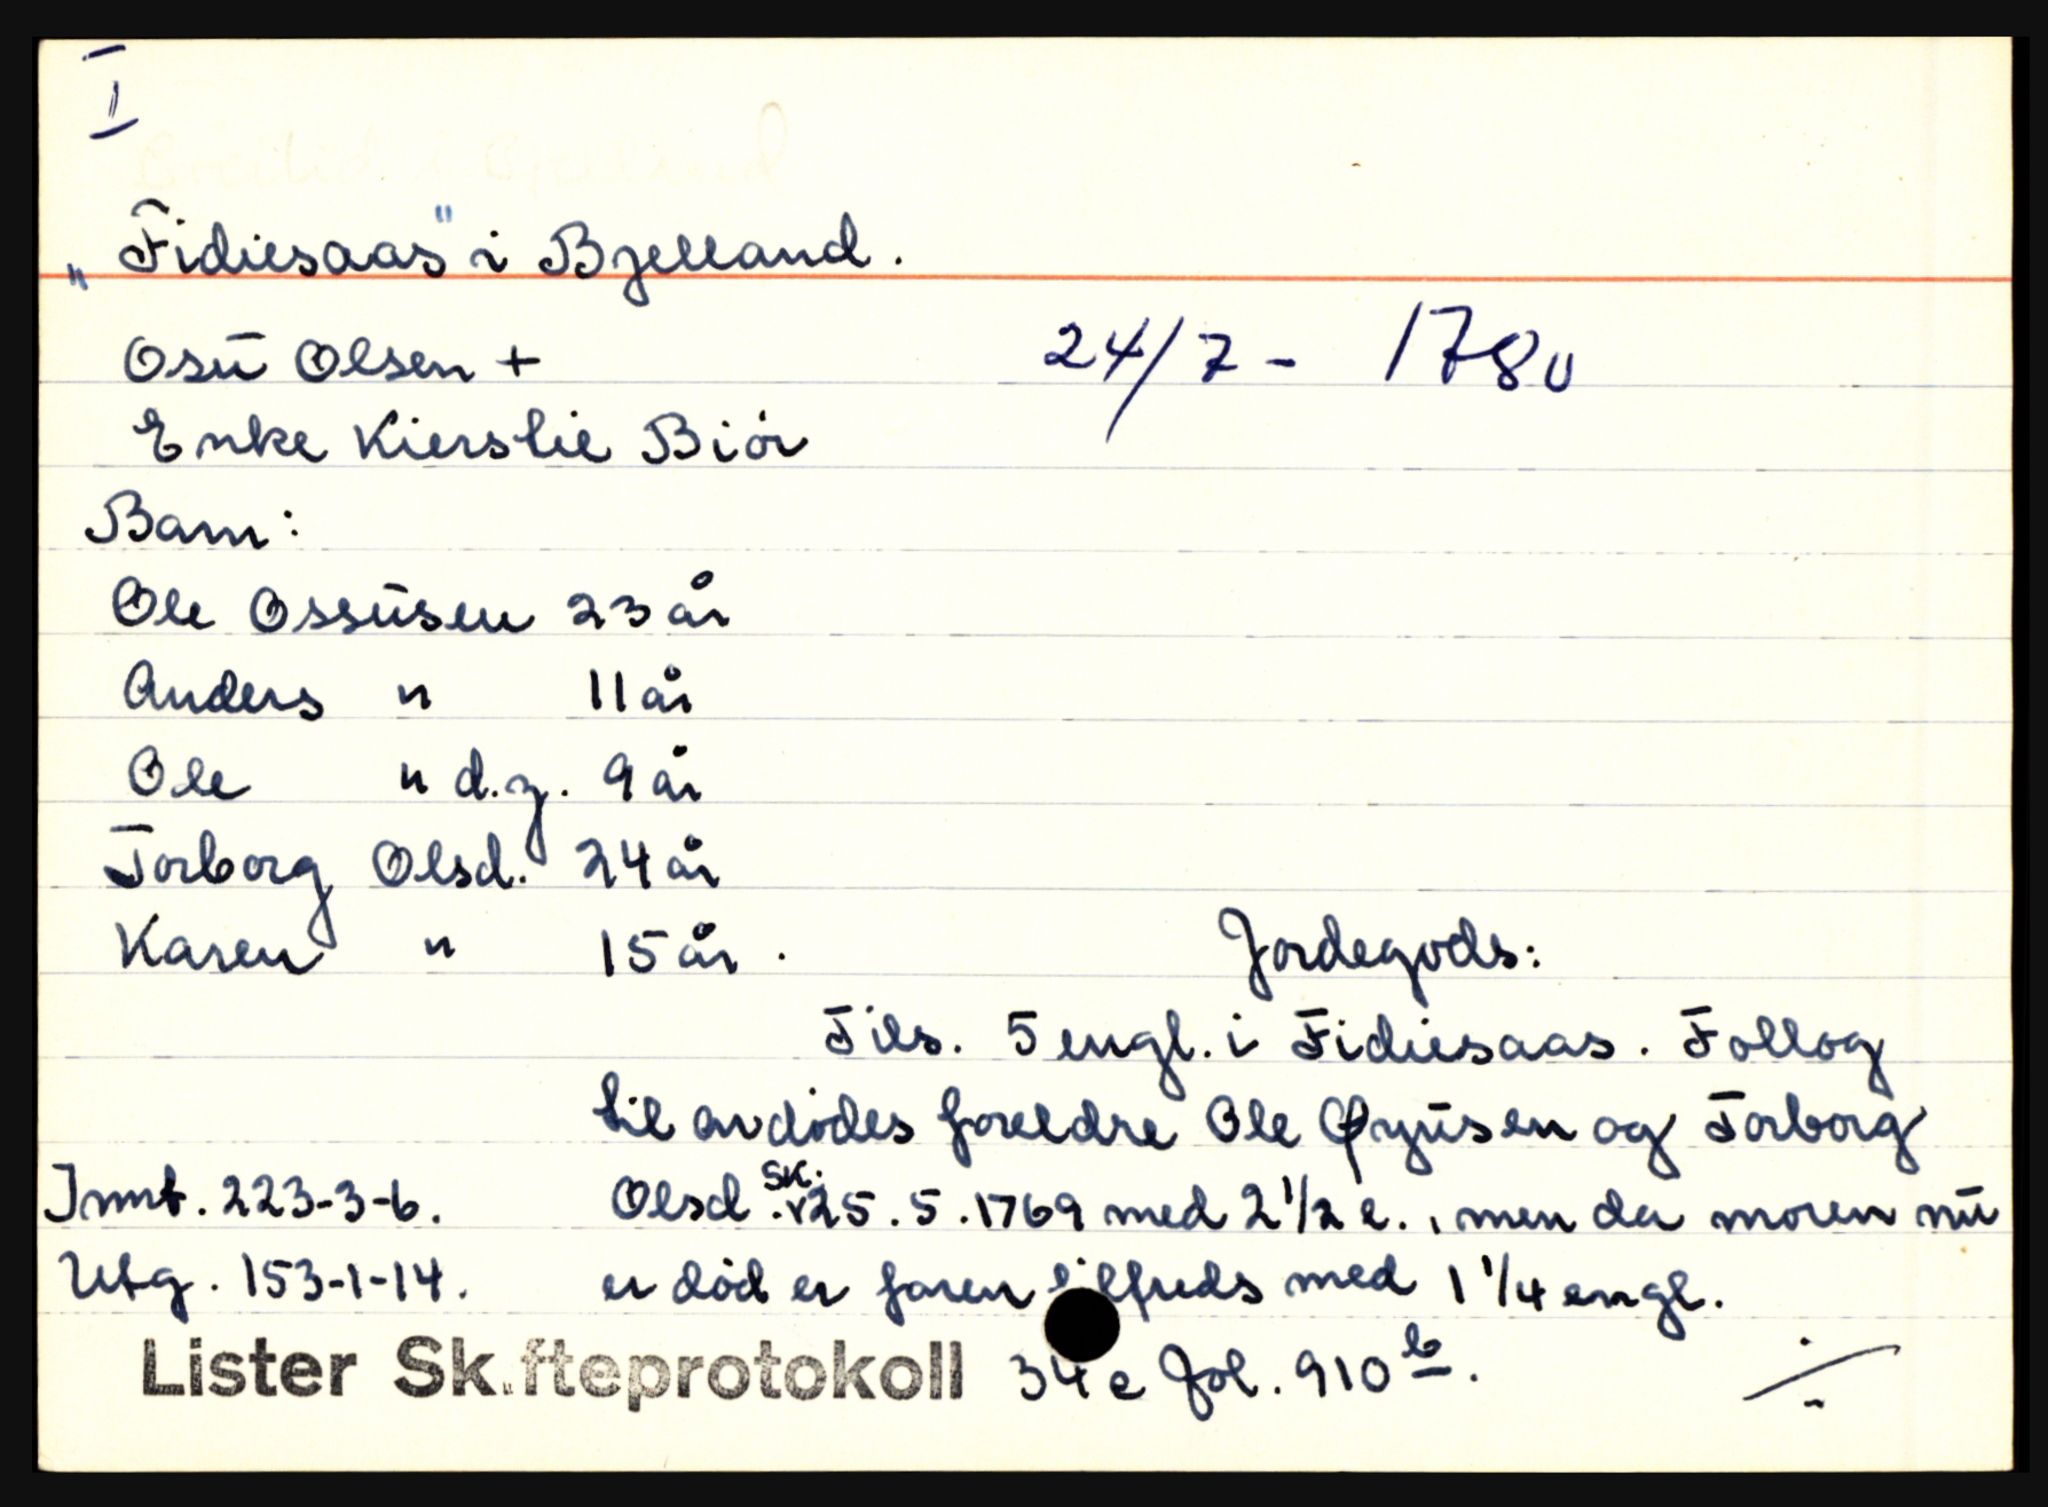 I
"Fidiesaas" i Bjelland.
Osü Olsen +
24/7 - 1780
Enke Kierstie Biör
Barn:
Ole Ossüsen 23 år
Anders " 11 år
Ole " d.y. 9 år
Torborg Olsd. 24 år
Karen " 15 år.
Jordegods:
Tils. 5 engl. i Fidiesaas. Follog
til avdödes foreldre Ole Øyüsen og Torborg
Olsd. sk. 25.5.1769 med 2 1/2 e., men da moren nü
er död er faren tilfreds med 1 1/4 engl.
Innt. 223-3-6.
Utg. 153-1-14.
Lister Sk.fteprotokoll 34 e fol. 910 b.